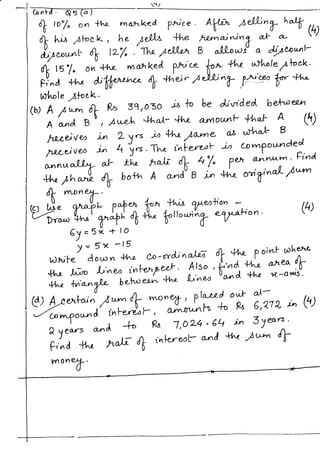 Contd. Q5(a)
of 10% on the marked price. After selling half
of his stock, he sells the remaining at a (4)
discount of 12%. The seller B allows a discount
of 15% on the marked price for the whole stock.
Find the difference of their selling prices for the
whole stock.
(b) A sum of Rs 39,030 is to be divided between
A and B, such that the amount that A (4)
receives in 2 yrs is the same as what B
receives in 4 yrs. The interest is compounded
annually at the rate of 4% per annum. Find
the share of both A and B in the original sum
of money.
(c) Use graph paper for this question -
Draw the graph of the following equation. (4)
6y = 5x + 10
y = 5x - 15
Write down the co-ordinates of the point where
the two lines intersect. Also, find the area of
the triangle between the lines and the x-axis.
(d) A certain sum of money, placed out at
compound interest, amounts to Rs 6,272 in (4)
2 years and to Rs 7,024.64 in 3 years.
Find the rate of interest and the sum of
money.